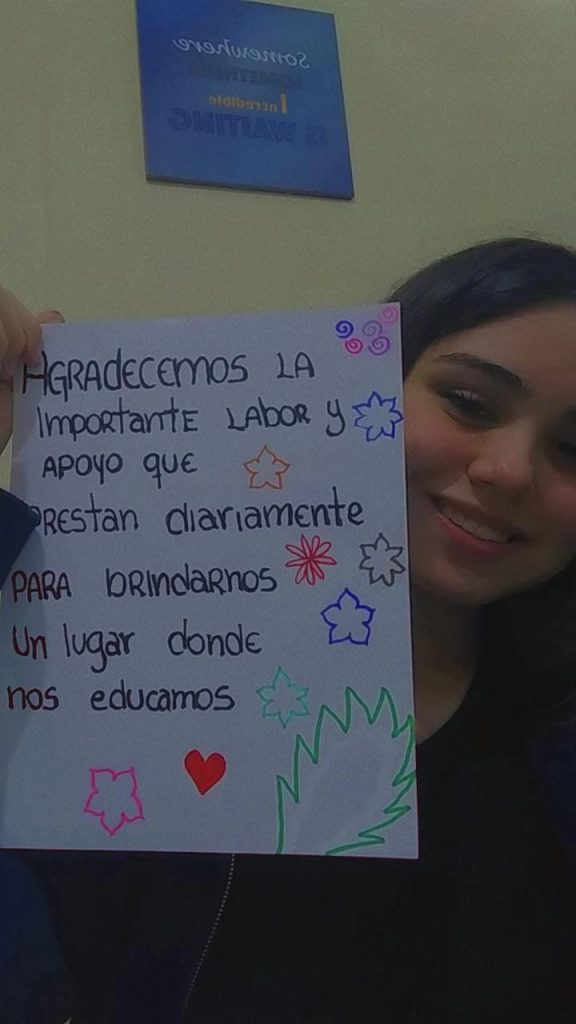 Somewhere
SOMETHING
Incredible
IS WAITING
AGRADECEMOS LA
IMPORTANTE LABOR Y
APOYO QUE
PRESTAN DIARIAMENTE
PARA BRINDARNOS
Un lugar donde
nos educamos